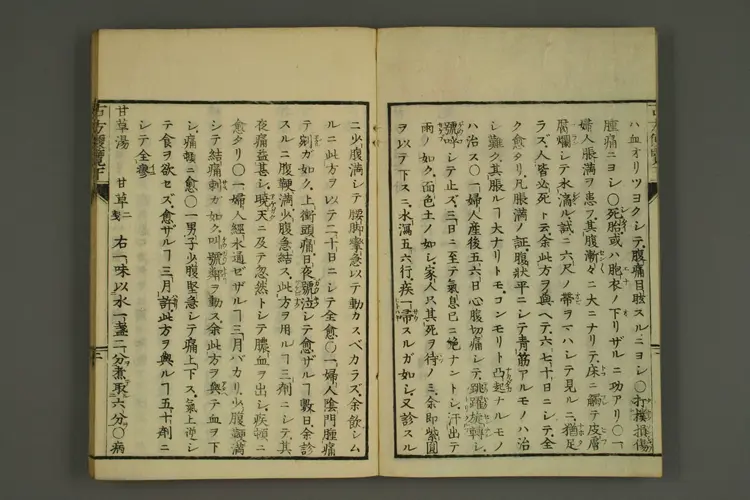 ハ血オリツヨクシテ、腹痛目眩スルニヨシ〇打撲損傷
腫痛ニヨシ〇死胎或ハ胞衣ノ下リザルニ功アリ〇一
婦人脹満ヲ患フ、其腹漸々ニ大ニナリテ、床ニ觸テ皮膚
腐爛シテ水漏ル、誠ニ六尺ノ帯ヲマハシテ見ルニ、猶足
ラズ、人皆必死ト云、余此方ヲ與ヘテ、六七十日ニシテ、全
ク愈タリ、凡脹満ノ証、腹狀平ニシテ、青筋アルモノハ治
シ難ク、其脹ルヿ大ナリトモ、コンモリト凸起ナルモノ
ハ治ス〇一婦人産後五六日、心腹切痛シテ、跳躍旋轉シ、
號呼シテ止ズ、三日ニ至テ氣息已ニ絶ナントシ、汗出テ
雨ノ如ク、面色土ノ如シ、家人只其死ヲ待ノミ、余即紫圓
ヲ以テ下スニ、水瀉五六行、疾一掃スルガ如シ、又診スル
ニ少腹満シテ、腰脚攣急シ、以テ動カスベカラズ、余飲シム
ルニ此方ヲ以テ、二十日ニシテ全愈〇一婦人陰門腫痛
テ剜ガ如ク、上衝頭痛、日夜號泣シテ愈ザルヿ數日、余診
スルニ腹鞕満、少腹急結ス、此方ヲ用ルヿ三劑ニシテ、其
夜痛益甚シ、曉天ニ及テ忽然トシテ膿血ヲ出シ、疾頓ニ
愈タリ〇一婦人經水通ゼザルヿ三月バカリ、少腹鞕満
シテ結痛刺ガ如ク、叫號鄰ヲ動ス、余此方ヲ與テ血ヲ下
シ、痛頓ニ愈〇一男子少腹堅急シテ、痛上下ス、氣上逆シ
テ食ヲ欲セズ、愈ザルヿ三月許、此方ヲ與ルヿ五十劑ニ
シテ全瘳
甘草湯　甘草二錢　右一味以水一盞二分煮取六分〇病